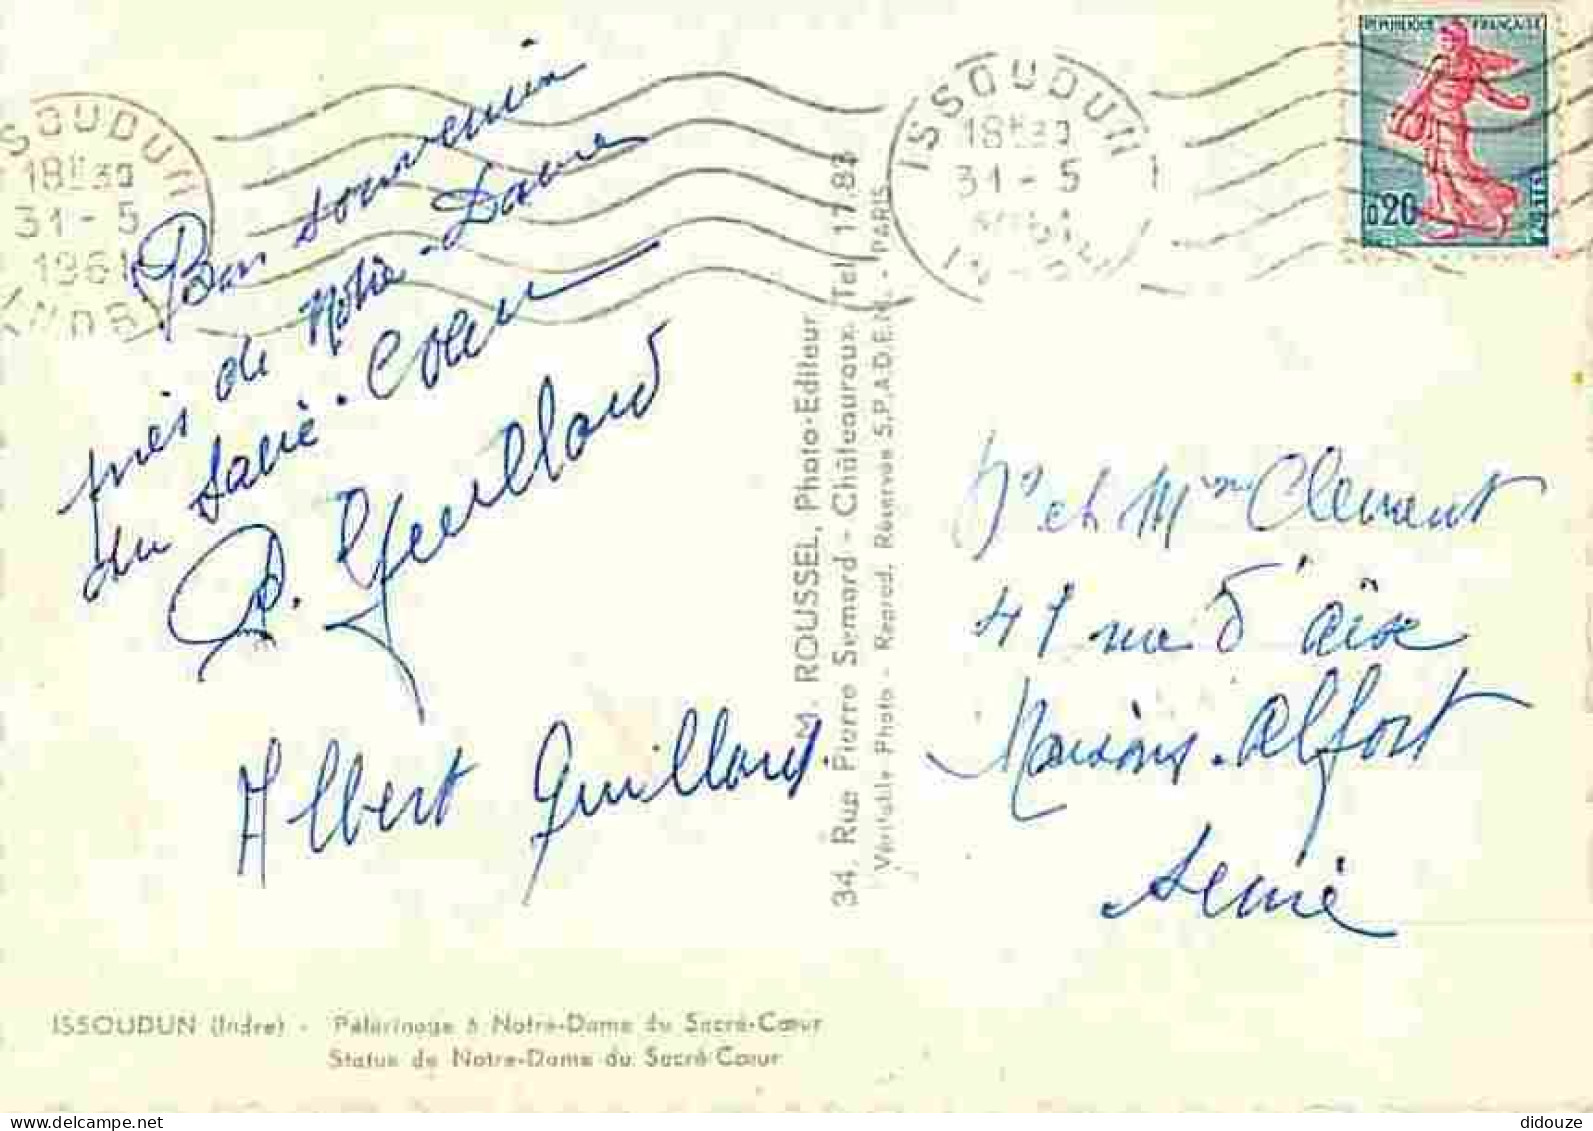 ISSOUDUN
18H30
31-5
1961
INDRE
ISSOUDUN
18H30
31-5
RÉPUBLIQUE FRANÇAISE
0,20
POSTES
Bon souvenir
près de Notre-Dame
du Sacré-Coeur
Guillard
Albert Guillard
M. ROUSSEL, Photo-Editeur
34, Rue Pierre Semard - Châteauroux (Tel. 17.83
Véritable Photo - Reprod. Réservée S.P.A.D.E.M. - PARIS
Mr et Mme Clement
41 rue d'
Maisons-Alfort
Seine
ISSOUDUN (Indre) - Pélerinage à Notre-Dame du Sacré-Cœur
Statue de Notre-Dame du Sacré-Cœur
didouze